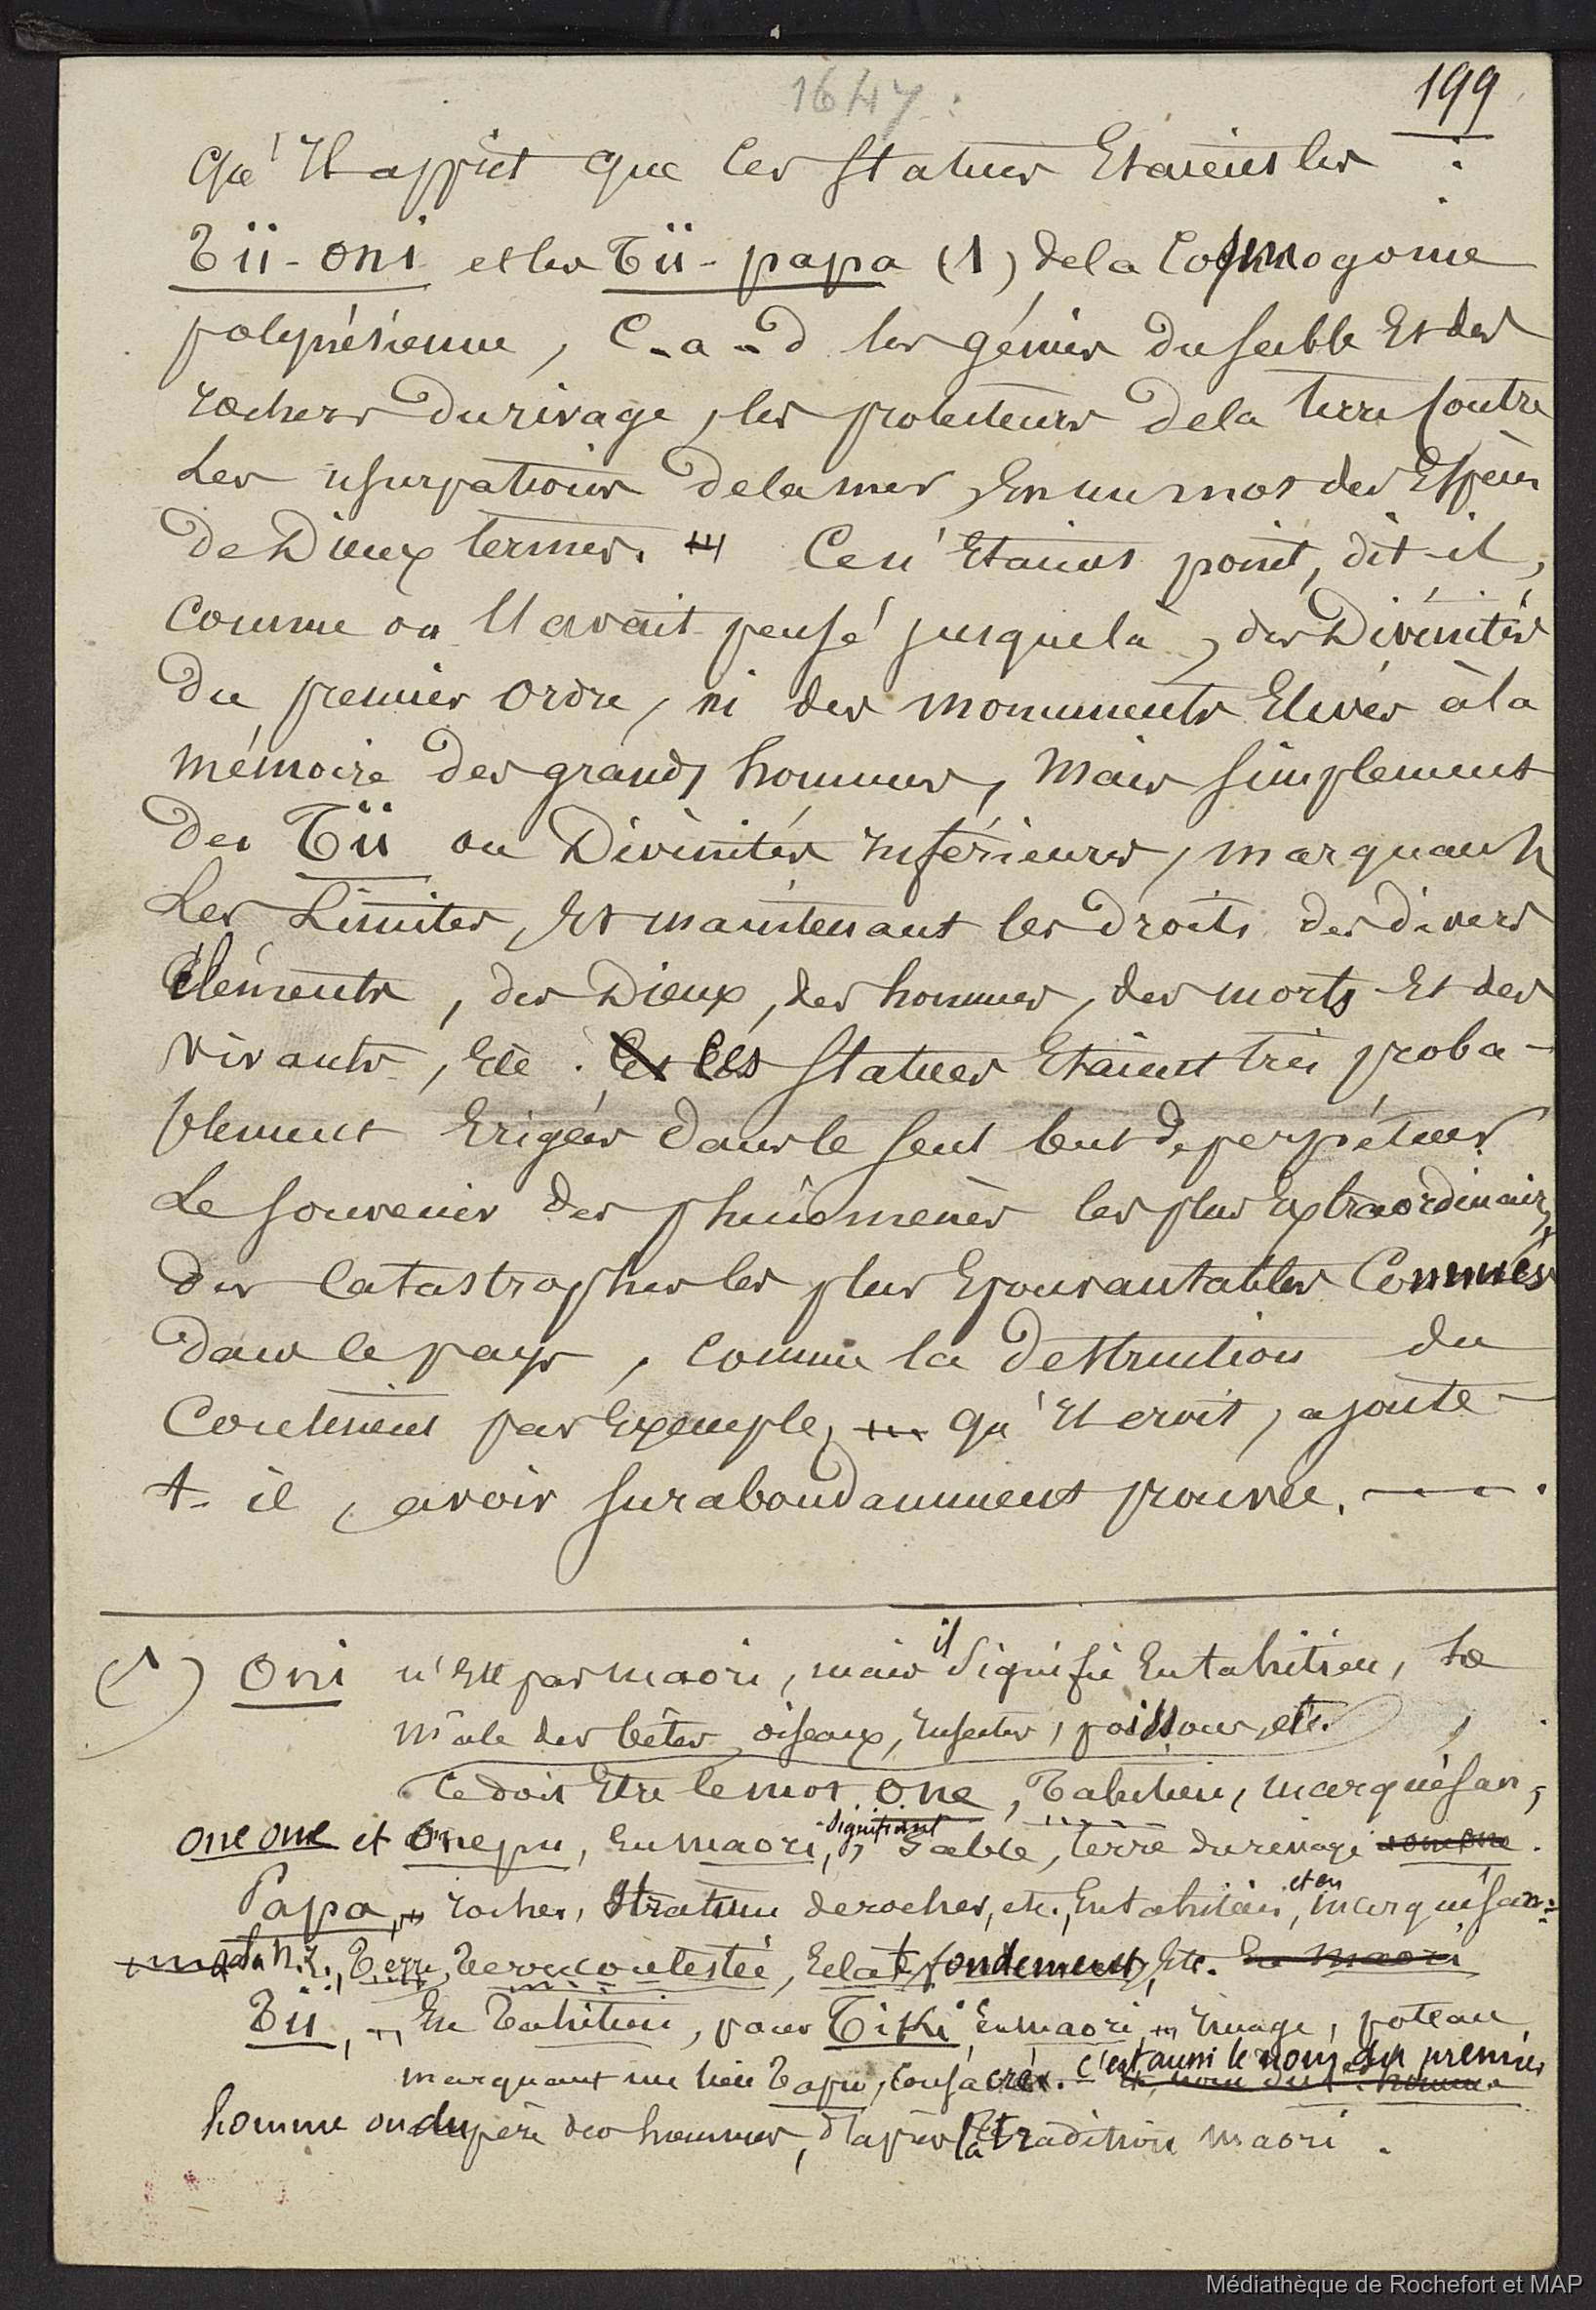 1647.
199
Qu'Il apprit que les Statues Etaient les :
Tii-oni et les Tii-papa (1) de la Cosmogonie
polynésienne, C-a-d les génies du sable Et des
rochers du rivage, les protecteurs de la terre Contre
Les usurpations de la mer, En un mot des Espèces
De Dieux termes. Ce n'Etaient point, dit-il,
Comme on l'avait pensé jusque là, des Divinités
Du premier Ordre, ni des monuments Elevés à la
Mémoire des grands hommes, Mais Simplement
Des Tii ou Divinités Inférieures, marquant
Les Limites, Et maintenant les droits des divers
Eléments, des Dieux, des hommes, des morts Et des
vivants, Etc. Les Statues Etaient très proba-
blement Erigées dans le seul but de perpétuer
Le Souvenir des phénomènes les plus Extraordinaires,
Des Catastrophes les plus Epouvantables Connues
Dans le pays, Comme la Destruction du
Continent par Exemple, qu'Il croit, ajoute-
t-il, avoir surabondamment prouvée.
(1) Oni n'Est pas maori, mais il Signifie En tahitien, Le
Mâle des bêtes, oiseaux, Insectes, poissons, etc.
Ce doit Etre le mot One, Tahitien, marquésan,
one one et Onepu, En maori, signifiant Sable, terre du rivage one one.
Papa, rocher, Stratum de rocher, etc., En tahitien, et en marquésan:
à la N.Z., Terre, Terre contestée, Eclat fondement, Etc. En Maori
Tii, En Tahitien, pour Tiki En maori, Image, poteau
marquant un lieu Tapu, Consacré. C'est aussi le nom du premier
homme ou du père des hommes, D'après la tradition maori.
Médiathèque de Rochefort et MAP